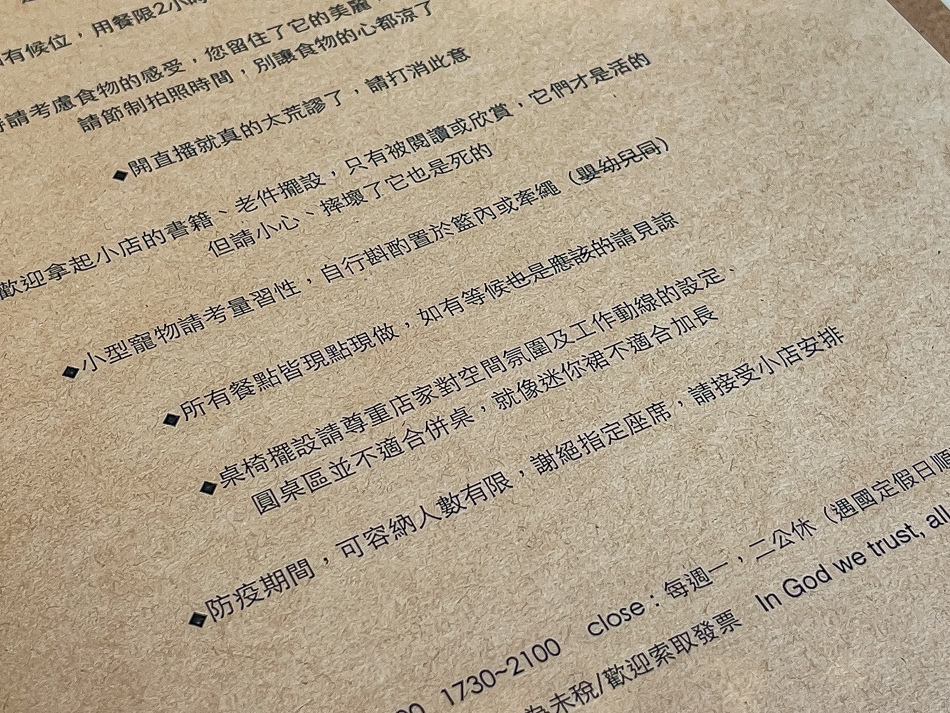 有候位，用餐限2小時
請考慮食物的感受，您留住了它的美麗，
請節制拍照時間，別讓食物的心都涼了
◆開直播就真的太荒謬了，請打消此意
歡迎拿起小店的書籍、老件擺設，只有被閱讀或欣賞，它們才是活的
但請小心、摔壞了它也是死的
◆小型寵物請考量習性，自行斟酌置於籃內或牽繩（嬰幼兒同）
◆所有餐點皆現點現做，如有等候也是應該的請見諒
◆桌椅擺設請尊重店家對空間氛圍及工作動線的設定、
圓桌區並不適合併桌，就像迷你裙不適合加長
◆防疫期間，可容納人數有限，謝絕指定座席，請接受小店安排
1730~2100 close：每週一，二公休（遇國定假日順
為未稅/歡迎索取發票 In God we trust, all